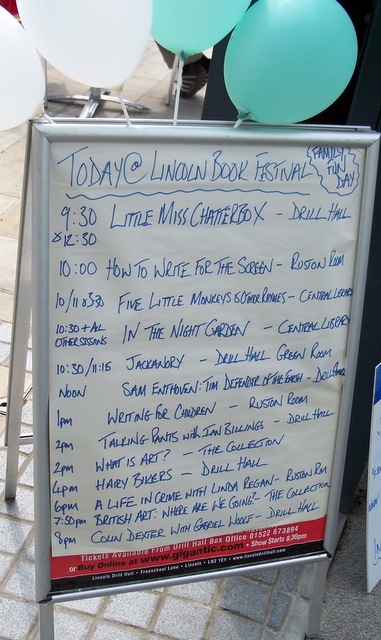 TODAY@ LINCOLN BOOK FESTIVAL
FAMILY
FUN
DAY
9:30 LITTLE MISS CHATTERBOX - DRILL HALL
& 12:30
10:00 HOW TO WRITE FOR THE SCREEN - RUSTON ROOM
10/11 & 3:30 FIVE LITTLE MONKEYS & OTHER RHYMES - CENTRAL LIBRARY
10:30 + ALL IN THE NIGHT GARDEN - CENTRAL LIBRARY
OTHER SESSIONS
10:30/11:15 JACKANORY - DRILL HALL GREEN ROOM
NOON SAM ENTHOVEN: TIM DEFENDER OF THE EARTH - DRILL HALL
1pm WRITING FOR CHILDREN - RUSTON ROOM
2pm TALKING PANTS WITH IAN BILLINGS - DRILL HALL
2pm WHAT IS ART? - THE COLLECTION
4pm HAIRY BIKERS - DRILL HALL
6pm A LIFE IN CRIME WITH LINDA REGAN - RUSTON RM
7:30pm BRITISH ART: WHERE ARE WE GOING? - THE COLLECTION
8pm COLIN DEXTER WITH GABRIEL WOOLF - DRILL HALL
Tickets Available From Drill Hall Box Office 01522 873894
or Buy Online at www.gigantic.com • Show Starts 8.30pm
Lincoln Drill Hall • Freeschool Lane • Lincoln • LN2 1EY • www.lincolndrillhall.com